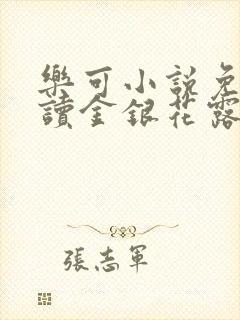 樂可小說免
讀金銀花露
張志軍